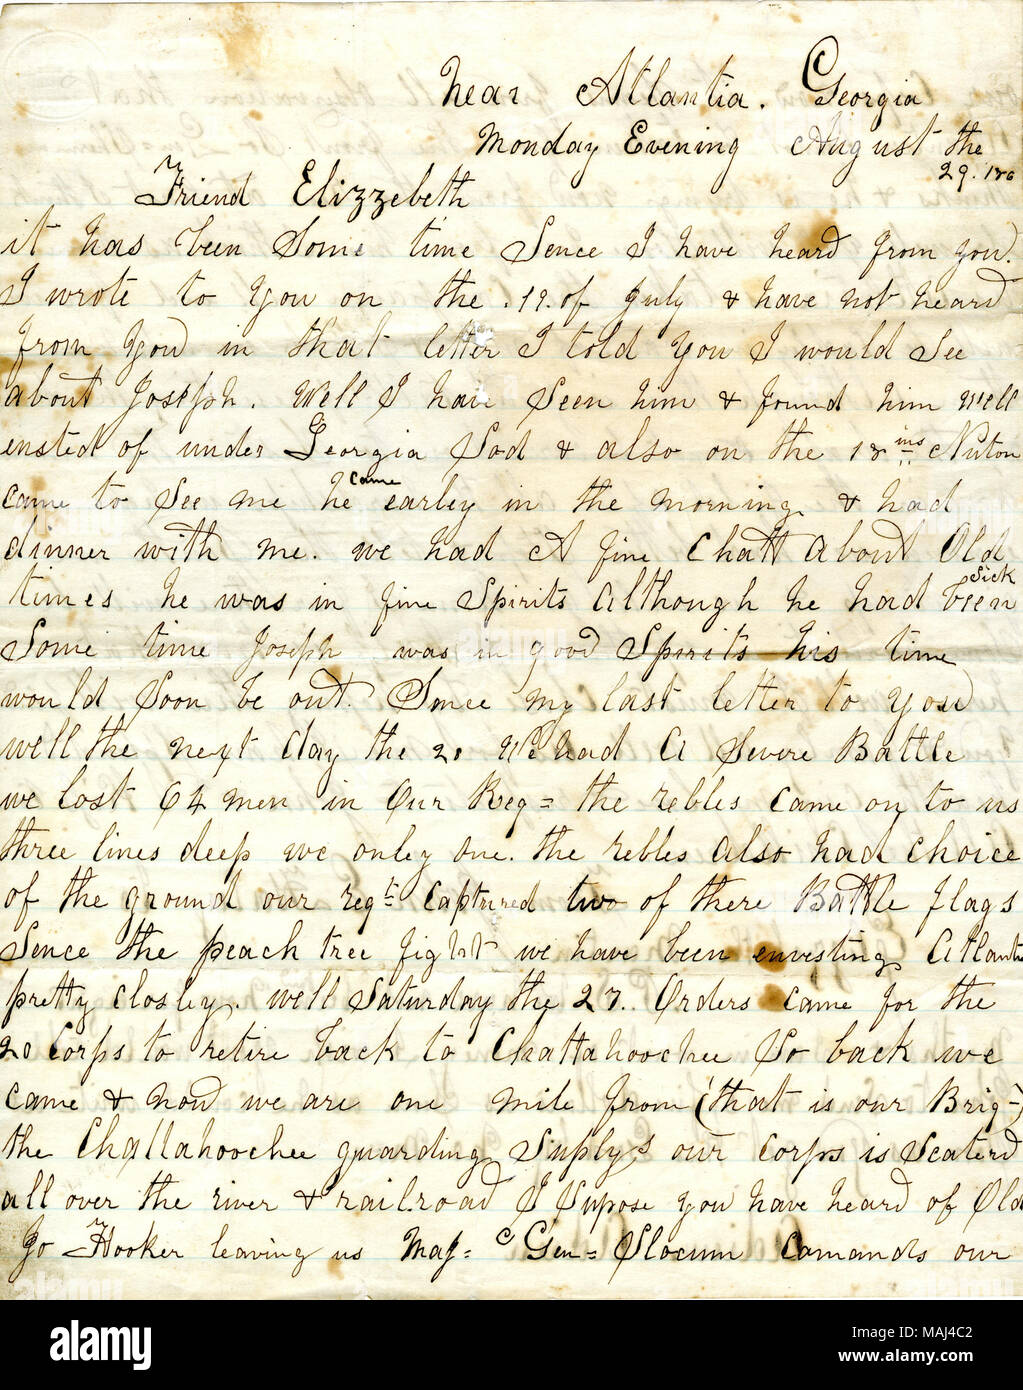 Near Atlantia. Georgia
Monday Evening August the
29. 186
Friend Elizzebeth
it has been Some time Sence I have heard from you.
I wrote to you on the .19. of July & have not heard
from you in that letter I told you I would See
about Joseph. Well I have Seen him & found him well
ensted of under Georgia Sod & also on the 18 ins Nuton
came to See me he came earley in the morning & had
dinner with me. we had A fine Chatt about Old
times he was in fine Spirits Although he had been Sick
Some time Joseph was in good Spirits his time
would Soon be out. Since my last letter to you
well the next day the 20 We had A Severe Battle
we lost 64 men in Our Reg= the rebles came on to us
three lines deep we onley one. the rebles also had choice
of the ground our regt. Captured two of there Battle flags
Sence the peach tree fight we have been envesting Atlanti
pretty closley. well Saturday the 27. Orders came for the
20 Corps to retire back to Chattahoochee So back we
came & now we are one mile from (that is our Brig-)
the Chattahoochee guarding Suplys our Corps is Scaterd
all over the river & railroad I Supose you have heard of Old
Jo Hooker leaving us Maj= Gen= Slocum Comands our
alamy
Image ID: MAJ4C2
www.alamy.com